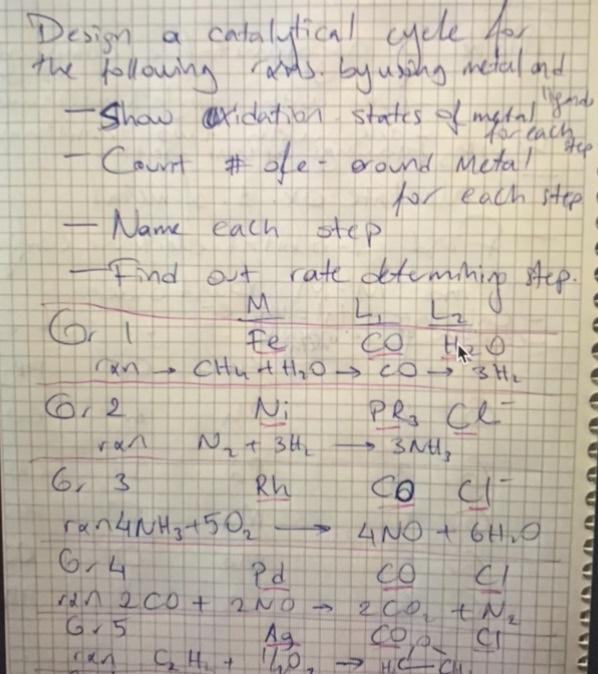 Design a catalytical cycle for
the following rxns. by using metal and
ligands
- Show Oxidation states of metal
for each
step
- Count # of e- around Metal
for each step
- Name each step
- Find out rate determining step.
M L1 L2
Gr 1 Fe CO H2O
rxn → CH4 + H2O → CO → 3H2
Gr 2 Ni PR3 Cl-
rxn N2 + 3H2 → 3NH3
Gr 3 Rh CO Cl-
rxn 4NH3 + 5O2 → 4NO + 6H2O
Gr 4 Pd CO Cl
rxn 2CO + 2NO → 2CO2 + N2
Gr 5 Ag CO Cl
rxn C2H + 1/2O2 → O